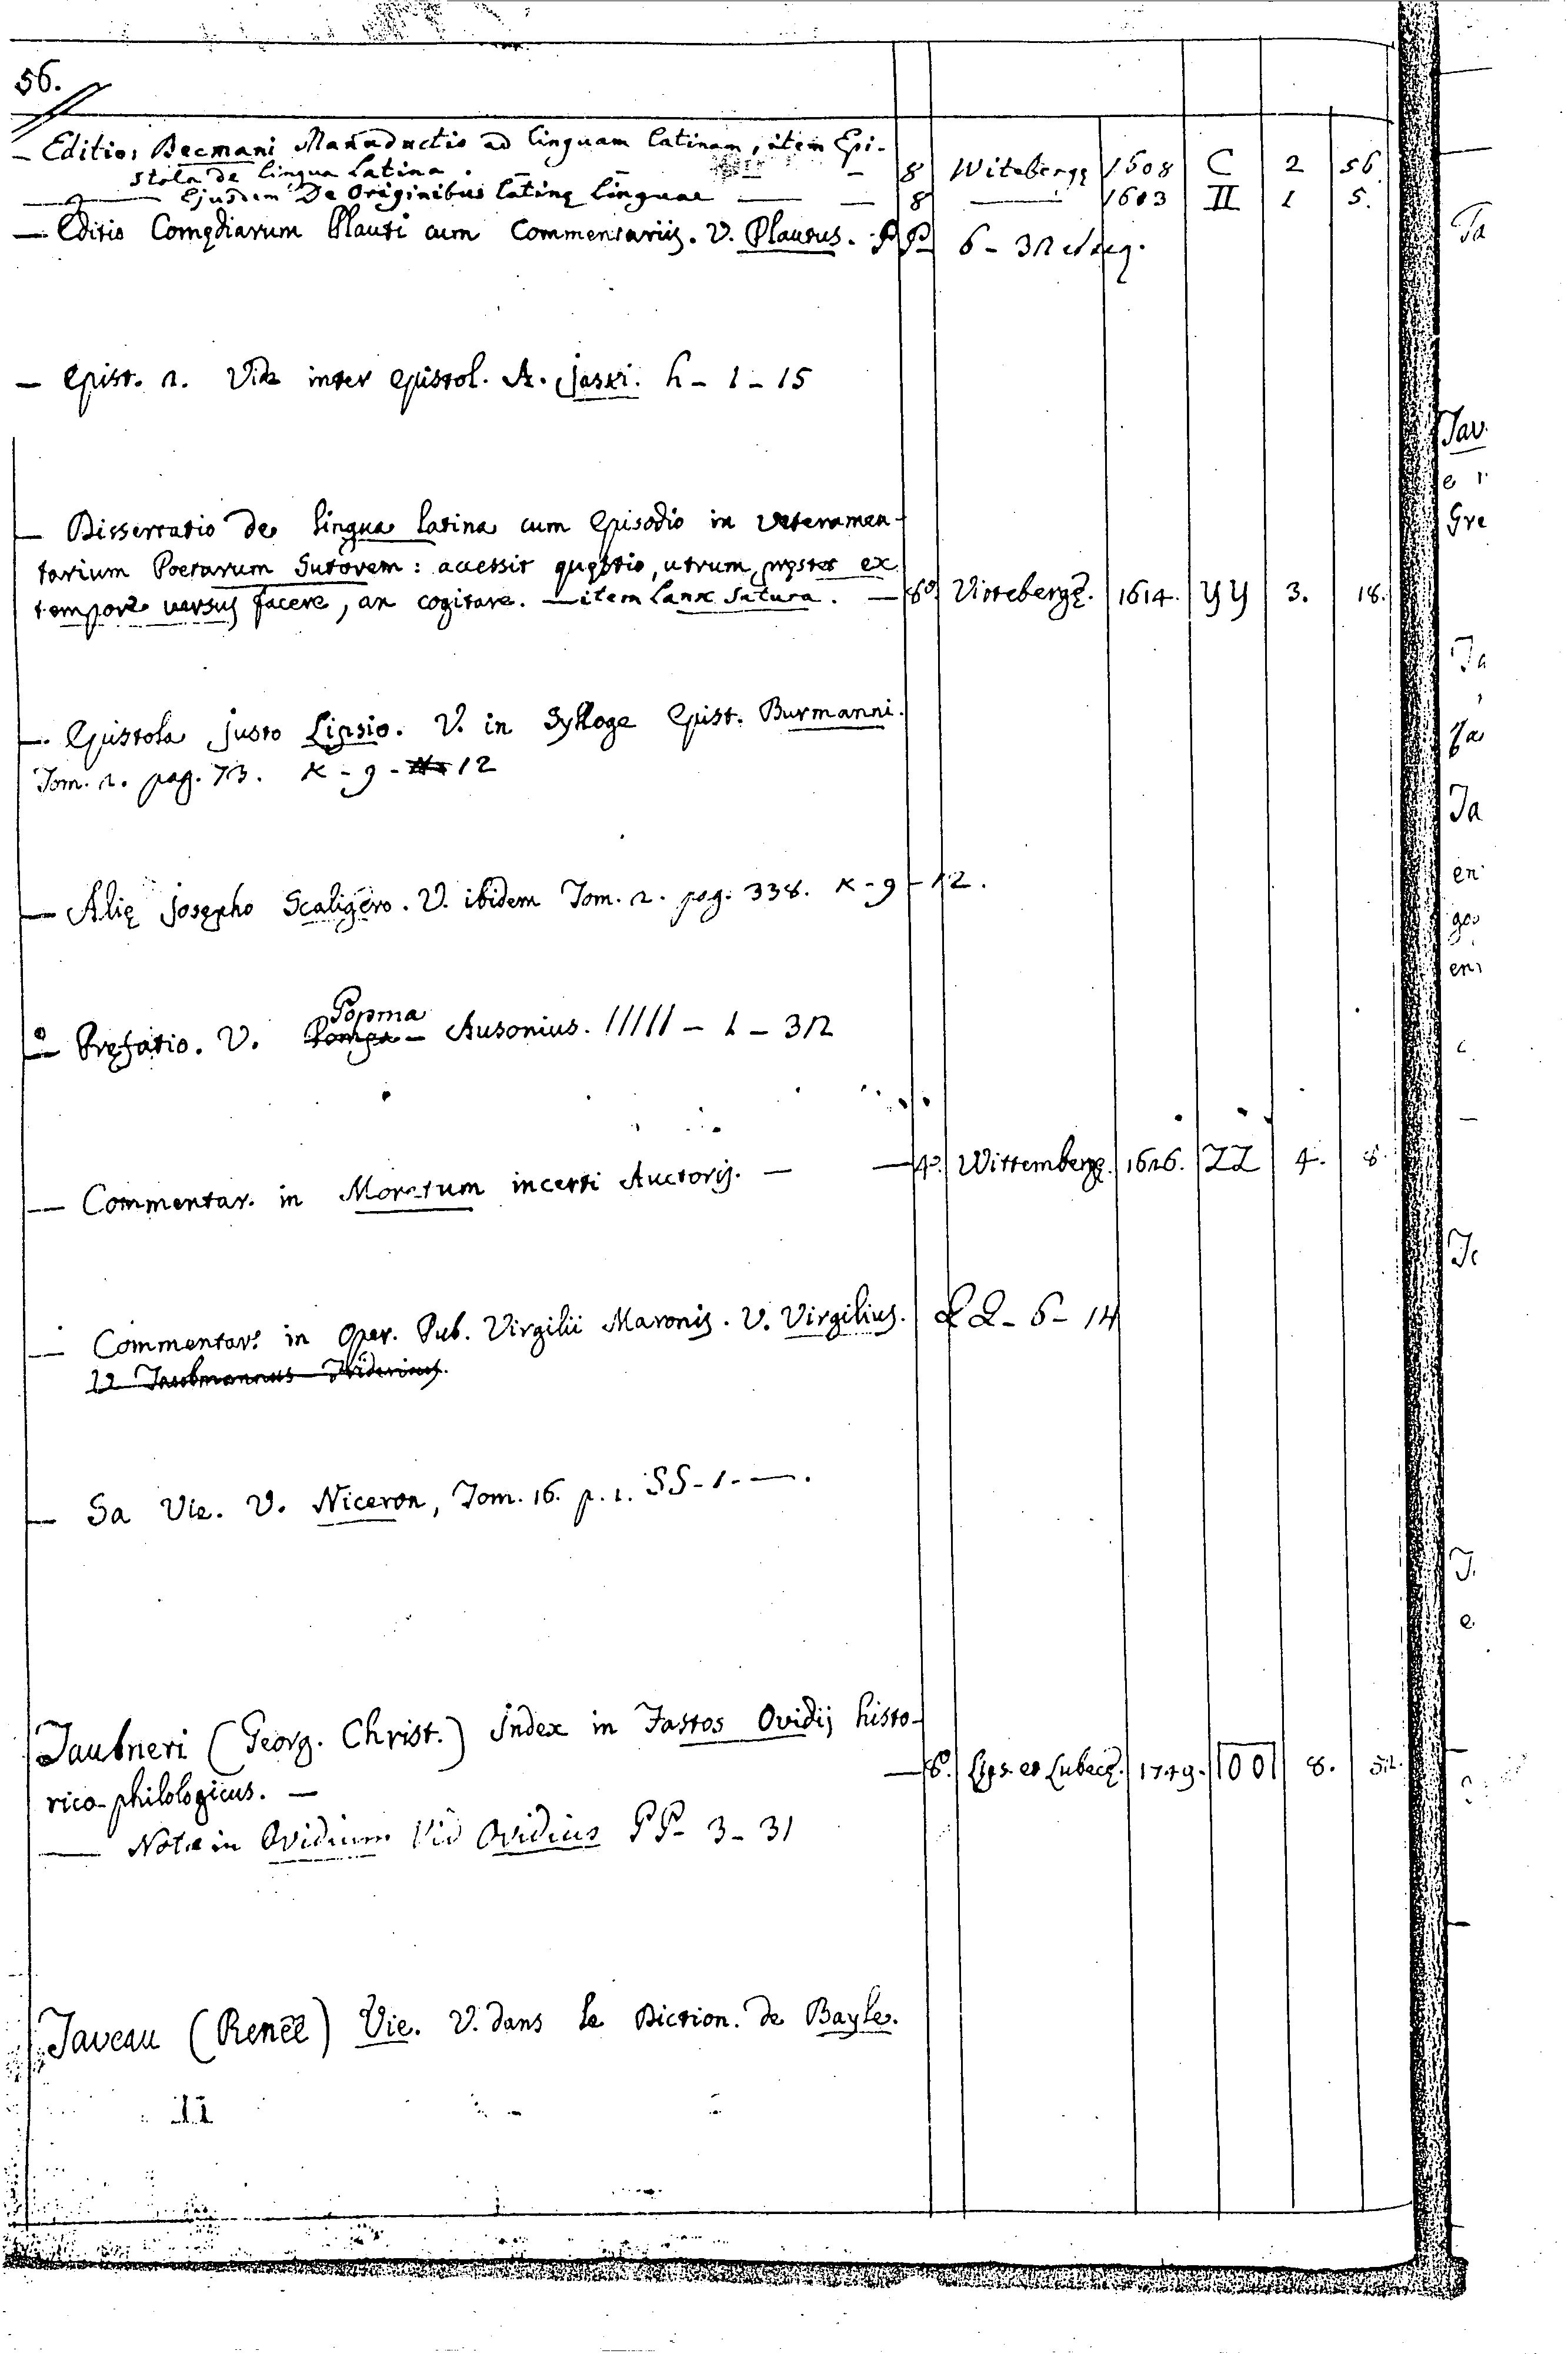 56.
— Editio, Becmani Manuductio ad linguam latinam, item Epi-
stola de lingua latina. — — — 8 Witebergę 1608 C 2 56
— Ejusdem De Originibus latinę linguae — — 8 — 1613 II 1 5.
— Editio Comędiarum Plauti cum Commentariis. V. Plautus. PP 6 - 32 et seq.
— Epist. 2. Vide inter epistol. A. Jaski. h - 1 - 15
— Dissertatio de lingua latina cum Episodio in Veteramen-
tarium Poetarum Sutorem: accessit quęstio, utrum pręstet ex
tempore versus facere, an cogitare. — item Lanx Satura. — 8º Vittebergę. 1614. YY 3. 18.
— Epistola Justo Lipsio. V. in Sylloge Epist. Burmanni.
Tom. 2. pag. 73. X - 9 - 12
— Alię Josepho Scaligero. V. ibidem Tom. 2. pag. 338. X - 9 - 12.
— Pręfatio. V. Popma Ausonius. IIIII - 1 - 32
— Commentar. in Moretum incerti Auctoris. — — 4º. Wittembergę. 1626. ZZ 4. 8
— Commentar. in Oper. Pub. Virgilii Maronis. V. Virgilius. QQ - 6 - 14
— Sa Vie. V. Niceron, Tom. 16. p. 1. SS - 1 - —.
Taubneri (Georg. Christ.) Index in Fastos Ovidij histo-
rico-philologicus. — — 8º. Lips. et Lubecę. 1749. OO 8. 52.
— Notæ in Ovidium Vid Ovidius PP - 3 - 31
Taveau (Renée) Vie. V. dans le Diction. de Bayle.